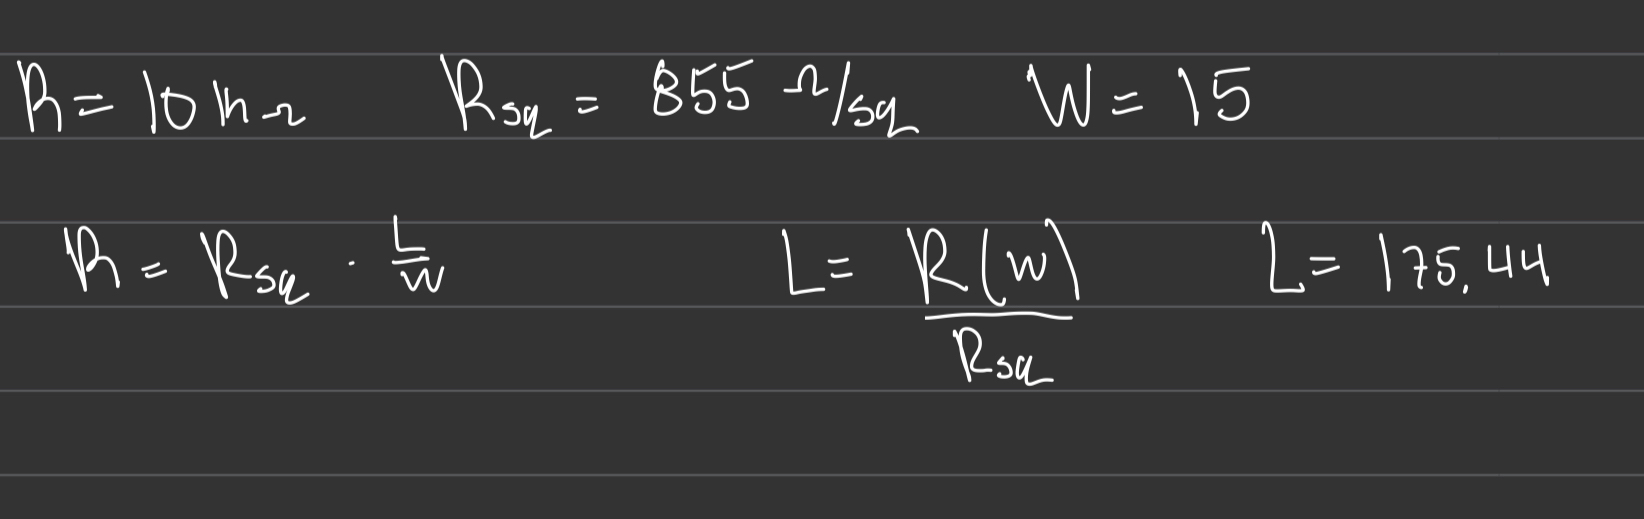 R = 10 kΩ Rsq = 855 Ω/sq W = 15
R = Rsq · L/W L = R(W)/Rsq L = 175.44